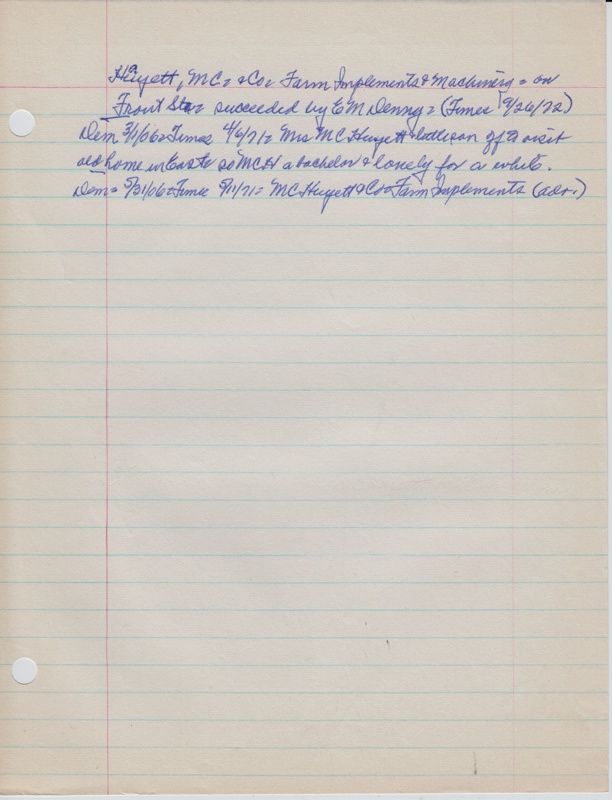 Huyett, M C = & Co = Farm Implements & Machinery = on
Front St = succeeded by E M Denny = (Times 9/26/72)
Dem 3/1/06 = Times 4/6/71 = Mrs M C Huyett & little son off to visit
old home in East so MCH a bachelor & lonely for a while.
Dem = 5/31/06 = Times 5/11/71 = M C Huyett & Co = Farm Implements (adv.)